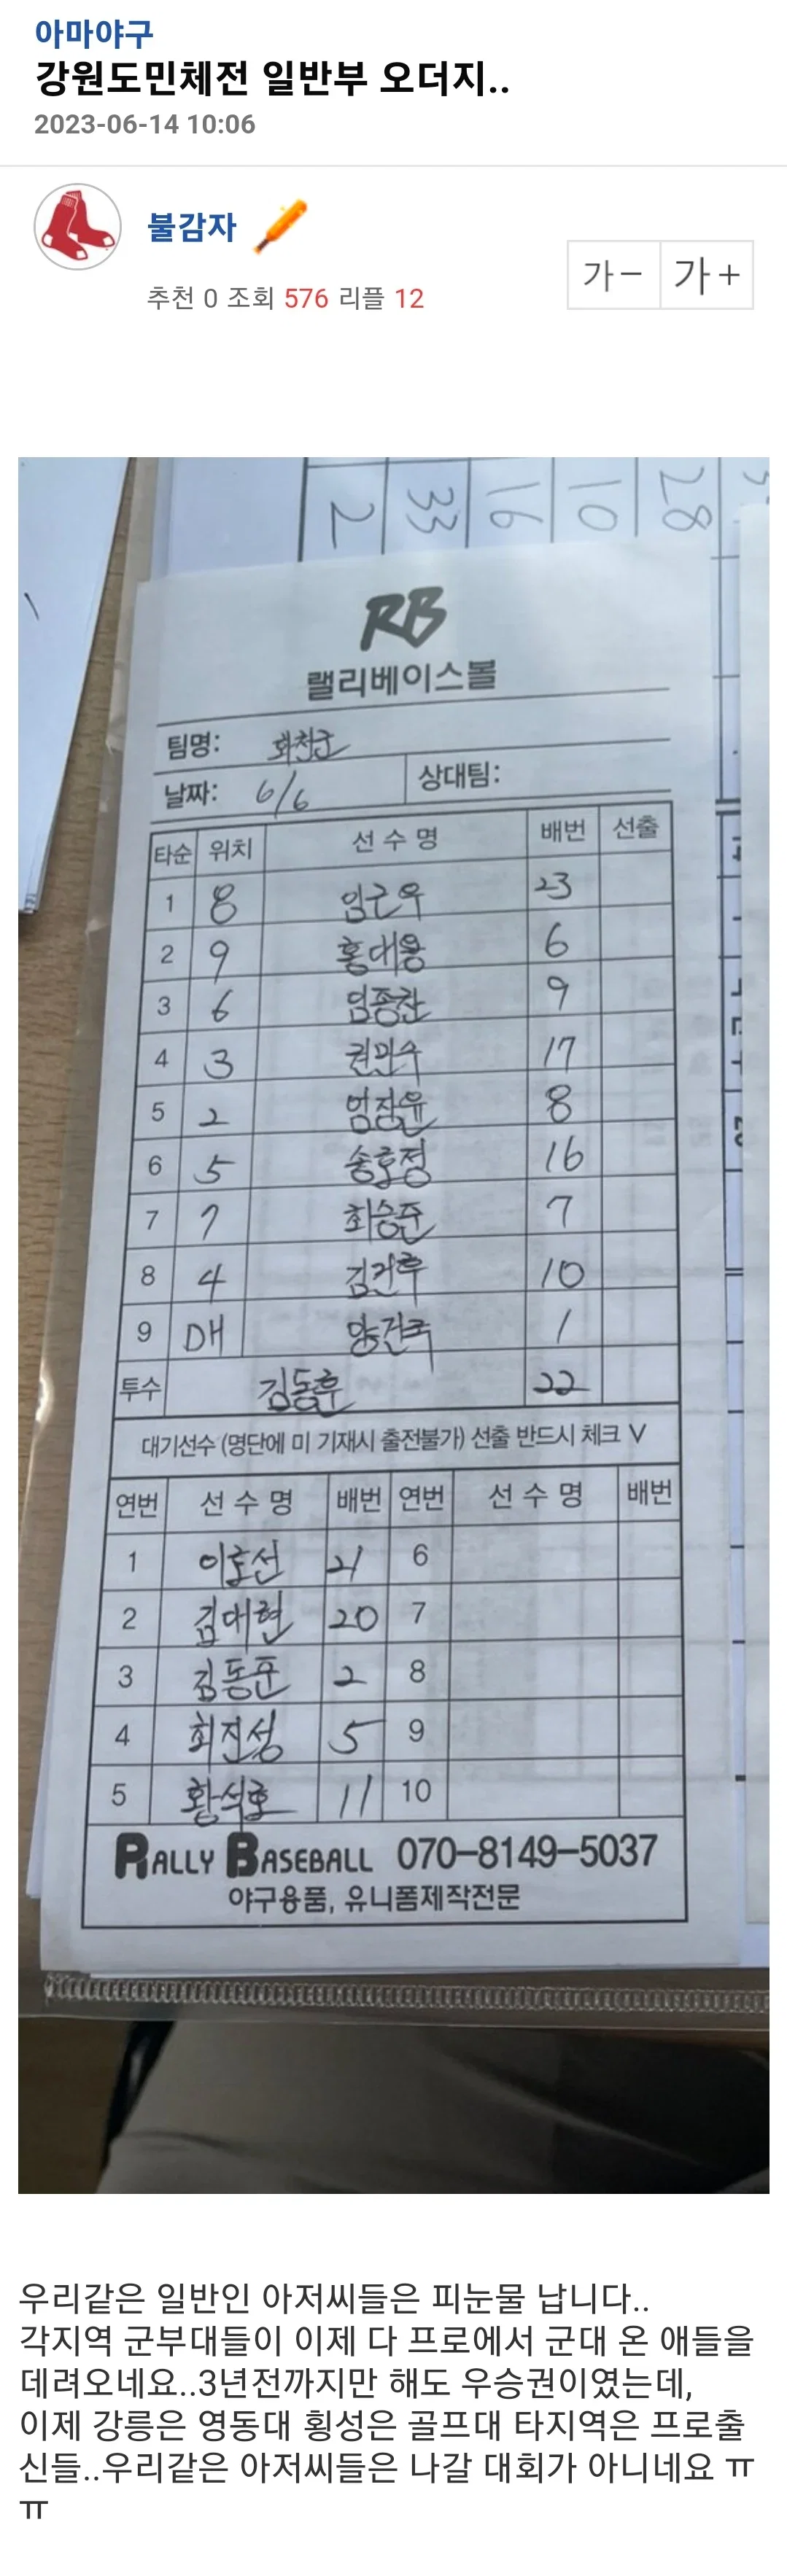 아마야구
강원도민체전 일반부 오더지..
2023-06-14 10:06
불감자
추천 0 조회 576 리플 12
가－ 가＋
2 33 16 10 28
RB
랠리베이스볼
팀명: 화천군
날짜: 6/6 상대팀:
타순 위치 선수명 배번 선출
1 8 임근우 23
2 9 홍대용 6
3 6 임종찬 9
4 3 권민수 17
5 2 엄장윤 8
6 5 송호정 16
7 7 최승준 7
8 4 김건후 10
9 DH 양건국 1
투수 김동훈 22
대기선수 (명단에 미 기재시 출전불가) 선출 반드시 체크 V
연번 선수명 배번 연번 선수명 배번
1 이호선 21 6
2 김대현 20 7
3 김동준 2 8
4 최진성 5 9
5 황석호 11 10
RALLY BASEBALL 070-8149-5037
야구용품, 유니폼제작전문
우리같은 일반인 아저씨들은 피눈물 납니다..
각지역 군부대들이 이제 다 프로에서 군대 온 애들을
데려오네요..3년전까지만 해도 우승권이였는데,
이제 강릉은 영동대 횡성은 골프대 타지역은 프로출
신들..우리같은 아저씨들은 나갈 대회가 아니네요 ㅠ
ㅠ